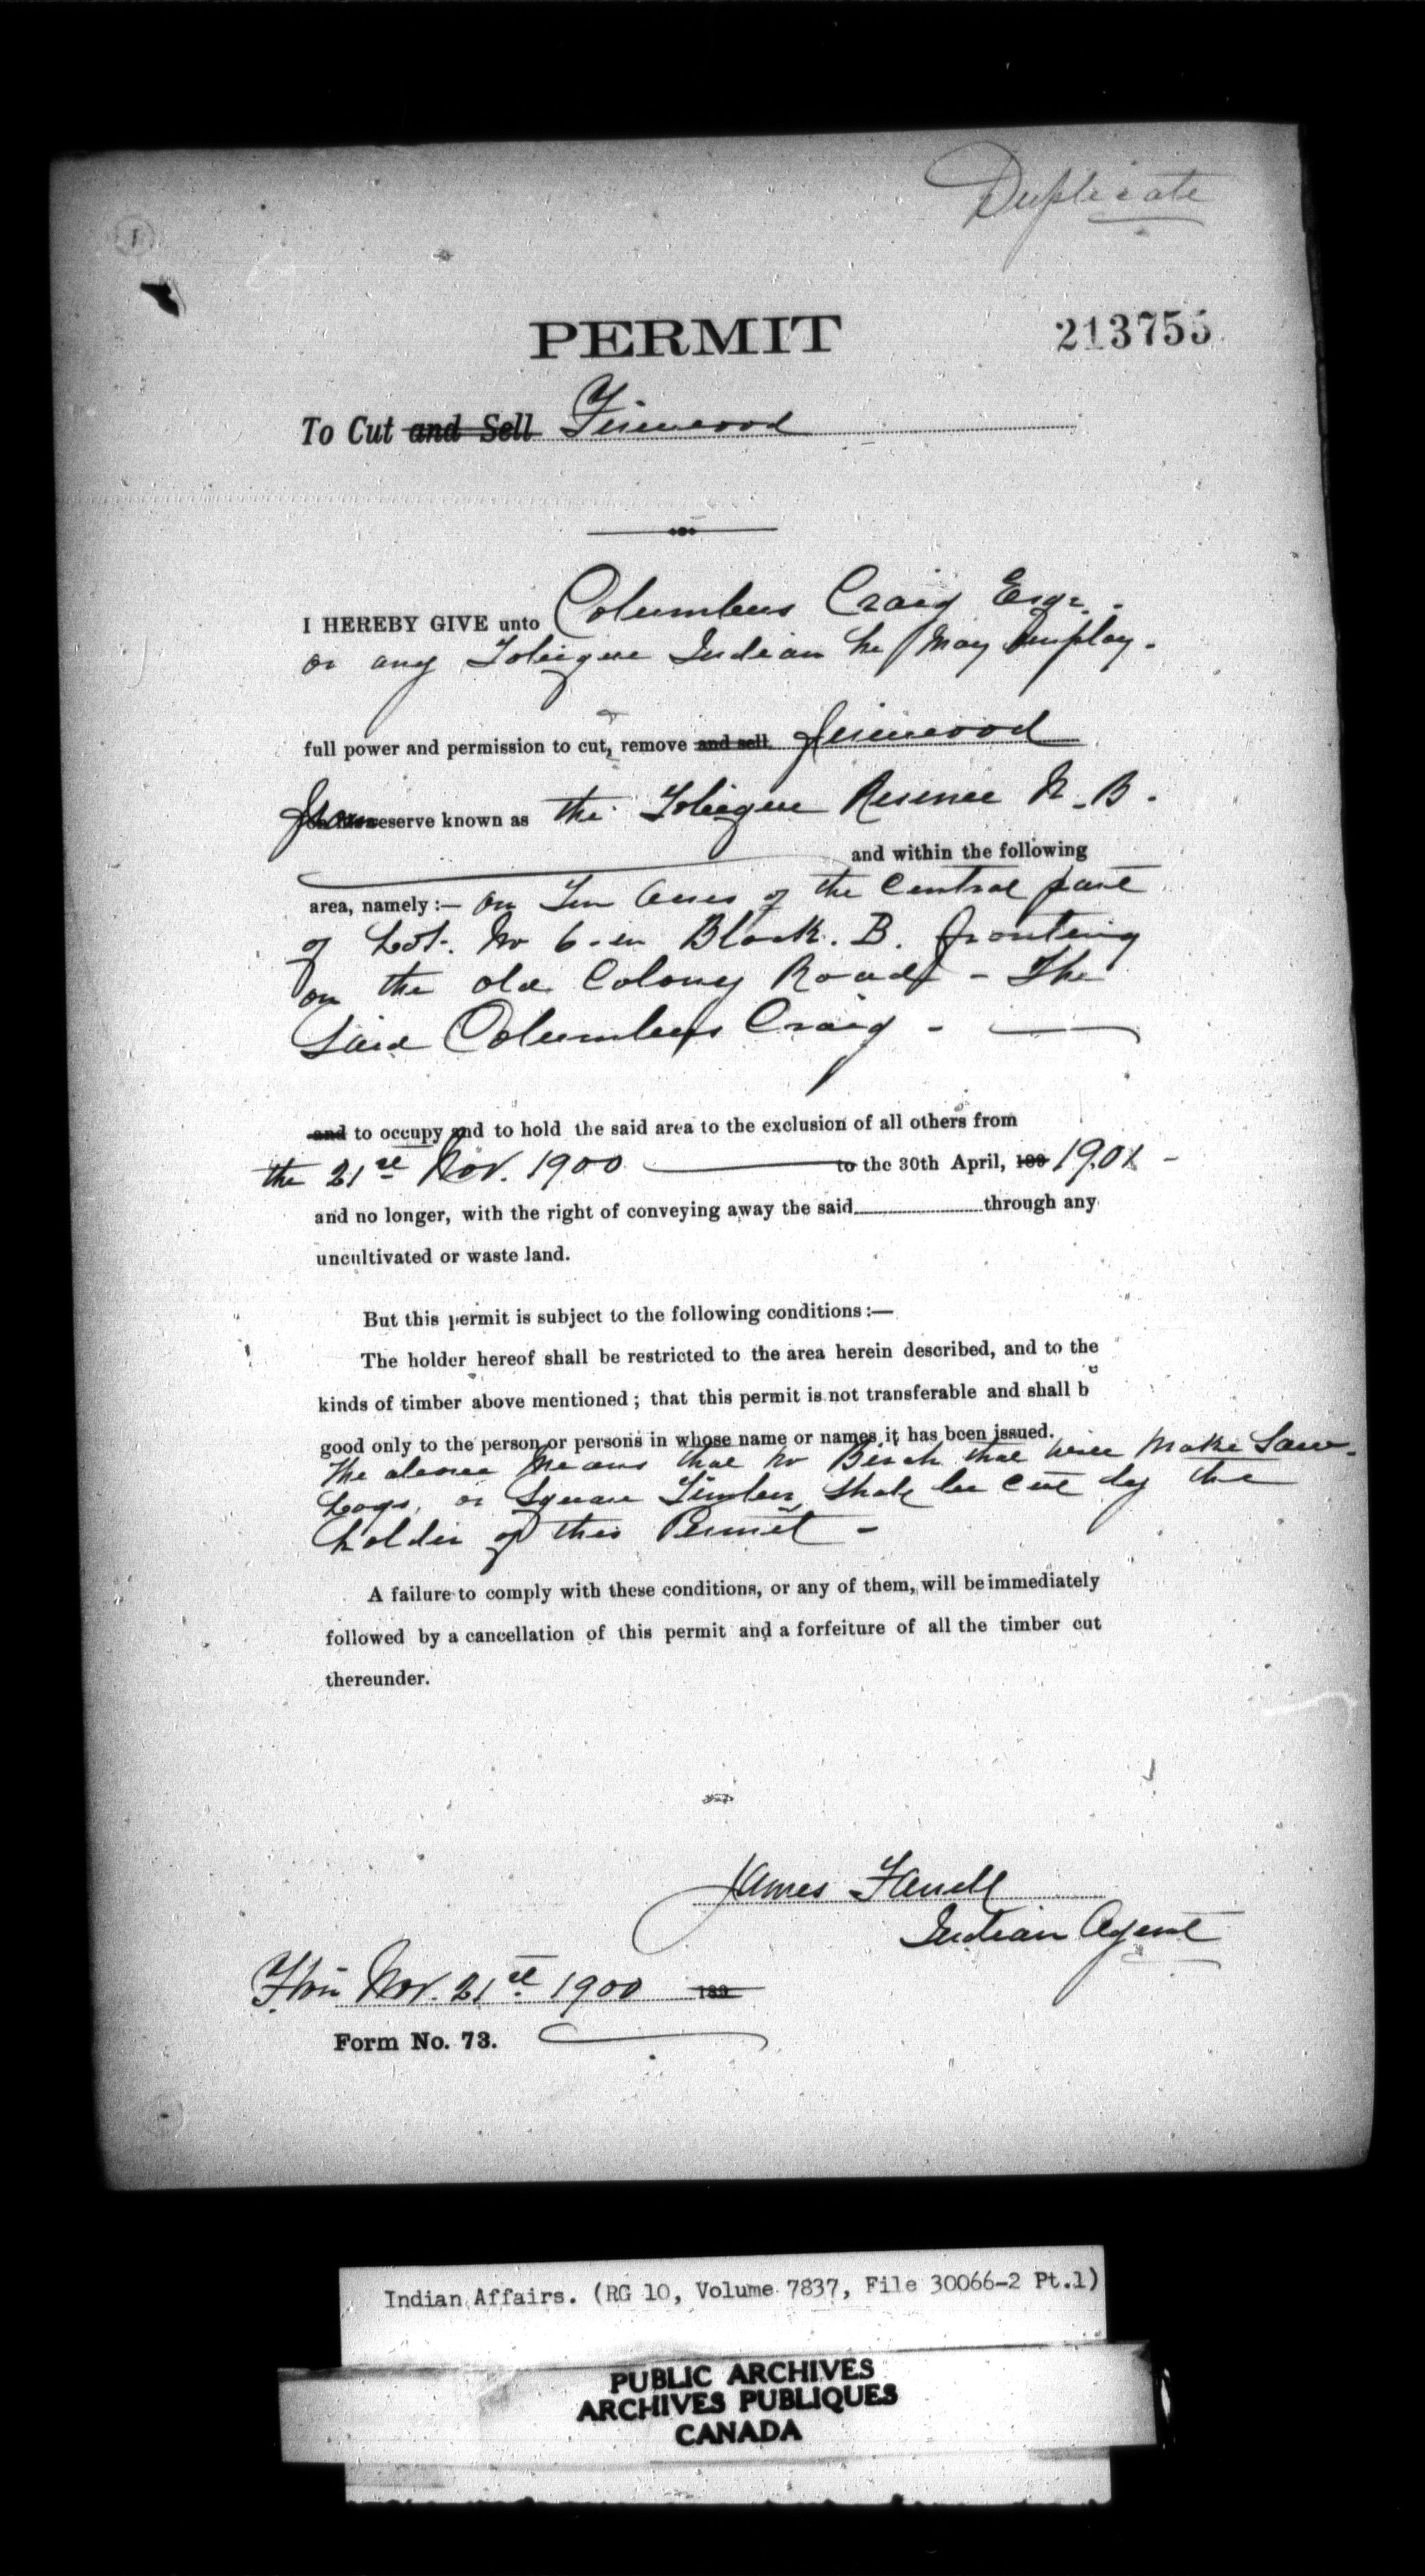 Duplicate
1
PERMIT
213755
To Cut and Sell Firewood
I HEREBY GIVE unto Columbus Craig Esqr.
or any Tobique Indian he May Employ.
full power and permission to cut, remove and sell Firewood
From reserve known as the Tobique Reserve N.B.
and within the following
area, namely :— On Ten Acres of the Central part
of Lot. No 6. in Block. B. fronting
on the old Colony Road - The
Said Columbus Craig -
and to occupy and to hold the said area to the exclusion of all others from
the 21st Nov. 1900 to the 30th April, 189 1901 -
and no longer, with the right of conveying away the said through any
uncultivated or waste land.
But this permit is subject to the following conditions :—
The holder hereof shall be restricted to the area herein described, and to the
kinds of timber above mentioned ; that this permit is not transferable and shall be
good only to the person or persons in whose name or names it has been issued.
The above Means that no Birch that will Make Saw
Logs, or Square Timber, shall be cut by the
holder of this Permit -
A failure to comply with these conditions, or any of them, will be immediately
followed by a cancellation of this permit and a forfeiture of all the timber cut
thereunder.
James Farrell
Indian Agent
Nov. 21st 1900 189
Form No. 73.
Indian Affairs. (RG 10, Volume 7837, File 30066-2 Pt.1)
PUBLIC ARCHIVES
ARCHIVES PUBLIQUES
CANADA